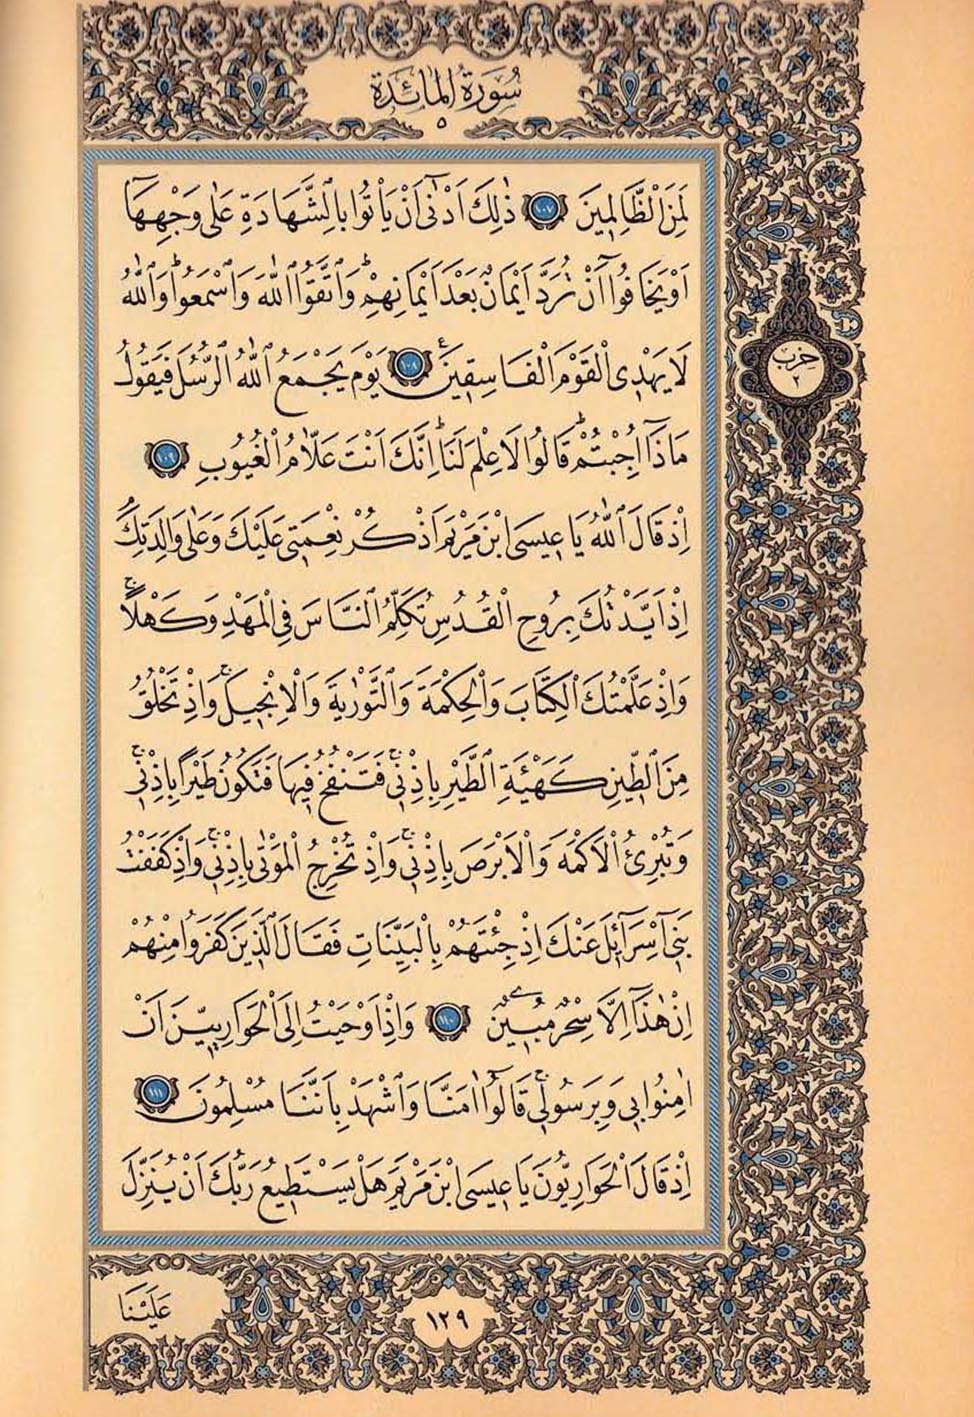 سُورَةُ الْمَائِدَةِ
٥
لَمِنَ الظَّالِمِينَ ﴿١٠٧﴾ ذٰلِكَ اَدْنٰٓى اَنْ يَأْتُوا بِالشَّهَادَةِ عَلٰى وَجْهِهَٓا
اَوْ يَخَافُٓوا اَنْ تُرَدَّ اَيْمَانٌ بَعْدَ اَيْمَانِهِمْۜ وَاتَّقُوا اللّٰهَ وَاسْمَعُواۜ وَاللّٰهُ
لَا يَهْدِى الْقَوْمَ الْفَاسِقِينَ۟ ﴿١٠٨﴾ يَوْمَ يَجْمَعُ اللّٰهُ الرُّسُلَ فَيَقُولُ
مَاذَٓا اُجِبْتُمْۜ قَالُوا لَا عِلْمَ لَنَاۜ اِنَّكَ اَنْتَ عَلَّامُ الْغُيُوبِ ﴿١٠٩﴾
اِذْ قَالَ اللّٰهُ يَا عِيسَى ابْنَ مَرْيَمَ اذْكُرْ نِعْمَتِى عَلَيْكَ وَعَلٰى وَالِدَتِكَۢ
اِذْ اَيَّدْتُكَ بِرُوحِ الْقُدُسِ تُكَلِّمُ النَّاسَ فِى الْمَهْدِ وَكَهْلًاۚ
وَاِذْ عَلَّمْتُكَ الْكِتَابَ وَالْحِكْمَةَ وَالتَّوْرٰيةَ وَالْاِنْجِيلَۚ وَاِذْ تَخْلُقُ
مِنَ الطِّينِ كَهَيْـَٔةِ الطَّيْرِ بِاِذْنِى فَتَنْفُخُ فِيهَا فَتَكُونُ طَيْرًا بِاِذْنِى
وَتُبْرِئُ الْاَكْمَهَ وَالْاَبْرَصَ بِاِذْنِىۚ وَاِذْ تُخْرِجُ الْمَوْتٰى بِاِذْنِىۚ وَاِذْ كَفَفْتُ
بَنِٓى اِسْرَٓائِلَ عَنْكَ اِذْ جِئْتَهُمْ بِالْبَيِّنَاتِ فَقَالَ الَّذِينَ كَفَرُوا مِنْهُمْ
اِنْ هٰذَٓا اِلَّا سِحْرٌ مُبِينٌ ﴿١١٠﴾ وَاِذْ اَوْحَيْتُ اِلَى الْحَوَارِيِّينَ اَنْ
اٰمِنُوا بِى وَبِرَسُولِىۚ قَالُٓوا اٰمَنَّا وَاشْهَدْ بِاَنَّنَا مُسْلِمُونَ ﴿١١١﴾
اِذْ قَالَ الْحَوَارِيُّونَ يَا عِيسَى ابْنَ مَرْيَمَ هَلْ يَسْتَطِيعُ رَبُّكَ اَنْ يُنَزِّلَ
حزب
٢
١٢٩
عَلَيْنَا